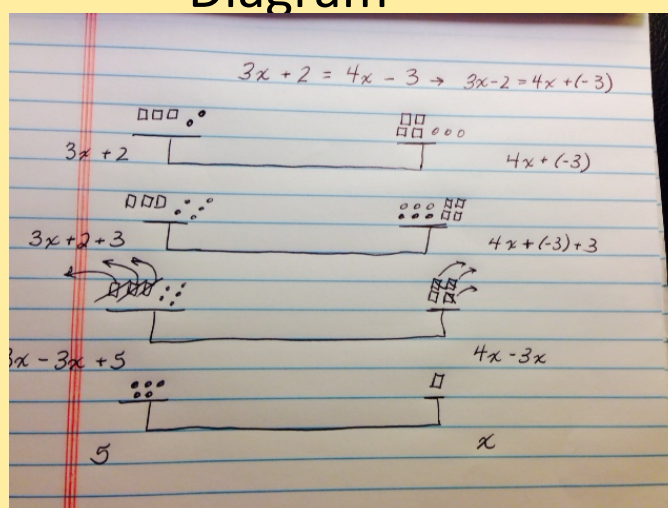 Diagram
3x + 2 = 4x - 3 → 3x-2 = 4x +(-3)
3x + 2
4x + (-3)
3x+2+3
4x + (-3) + 3
3x - 3x + 5
4x - 3x
5
x